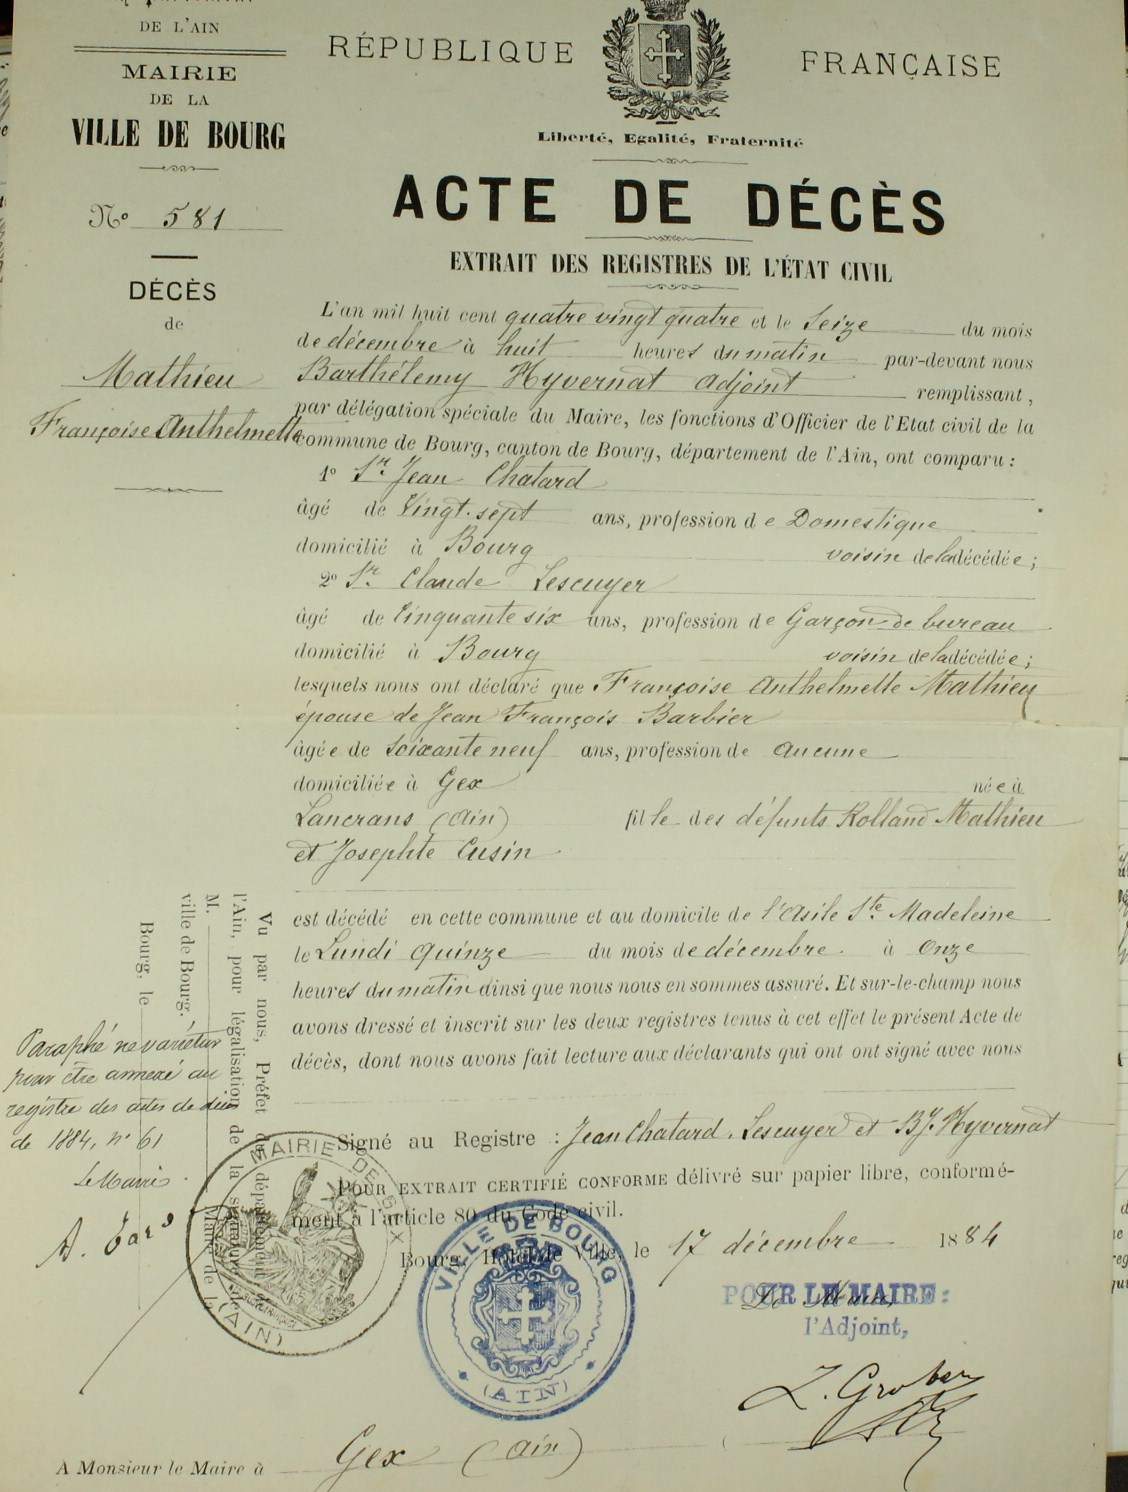 DE L'AIN
MAIRIE
DE LA
VILLE DE BOURG
Nº 581
DÉCÈS
de
Mathieu
Françoise Anthelmette
RÉPUBLIQUE FRANÇAISE
Liberté, Egalité, Fraternité
ACTE DE DÉCÈS
EXTRAIT DES REGISTRES DE L'ÉTAT CIVIL
L'an mil huit cent quatre vingt quatre et le Seize du mois
de décembre à huit heures du matin par-devant nous
Barthélemy Hyvernat adjoint remplissant,
par délégation spéciale du Maire, les fonctions d'Officier de l'Etat civil de la
commune de Bourg, canton de Bourg, département de l'Ain, ont comparu :
1º Sr. Jean Chatard
âgé de Vingt-sept ans, profession de Domestique
domicilié à Bourg voisin de la décédée ;
2º Sr. Claude Lescuyer
âgé de Cinquante six ans, profession de Garçon de bureau
domicilié à Bourg voisin de la décédée ;
lesquels nous ont déclaré que Françoise Anthelmette Mathieu
épouse de Jean François Barbier
âgée de soixante neuf ans, profession de aucune
domiciliée à Gex née à
Lancrans (Ain) fille des défunts Rolland Mathieu
et Josephte Cusin
est décédé en cette commune et au domicile de l'Asile Ste. Madeleine
le Lundi quinze du mois de décembre à onze
heures du matin ainsi que nous nous en sommes assuré. Et sur-le-champ nous
avons dressé et inscrit sur les deux registres tenus à cet effet le présent Acte de
décès, dont nous avons fait lecture aux déclarants qui ont ont signé avec nous
Signé au Registre : Jean Chatard, Lescuyer et By. Hyvernat
POUR EXTRAIT CERTIFIÉ CONFORME délivré sur papier libre, conformé-
ment à l'article 80 du Code civil.
Bourg, Hôtel de Ville, le 17 décembre 1884
Le Maire,
POUR LE MAIRE :
l'Adjoint,
Vu par nous, Préfet du département de
l'Ain, pour légalisation de la signature de
M. Maire de la
ville de Bourg.
Bourg, le
Paraphé ne varietur
pour être annexé au
registre des actes de décès
de 1884, nº 61
Le Maire
MAIRIE DE GEX
(AIN)
VILLE DE BOURG
(AIN)
A Monsieur le Maire à Gex (Ain)